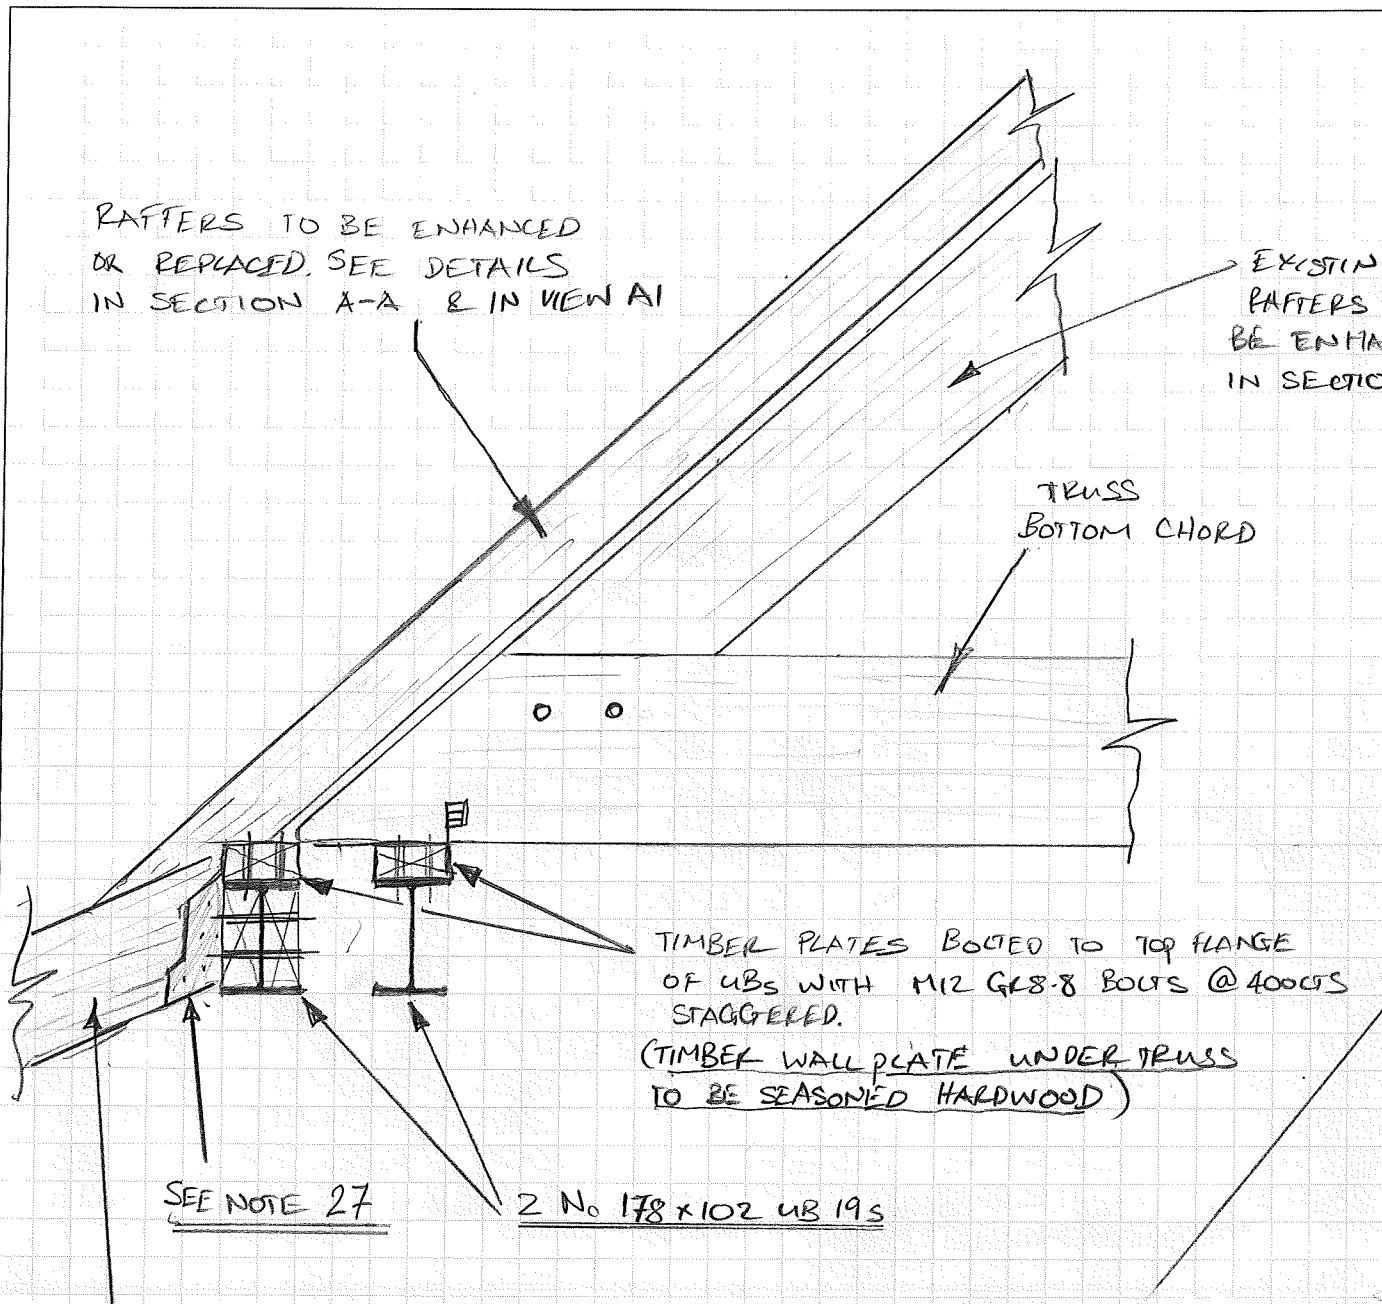 RAFTERS TO BE ENHANCED
OR REPLACED. SEE DETAILS
IN SECTION A-A & IN VIEW A1
EXISTIN
RAFTERS
BE ENHA
IN SECTIO
TRUSS
BOTTOM CHORD
TIMBER PLATES BOLTED TO TOP FLANGE
OF UBs WITH M12 GR8.8 BOLTS @ 400CTS
STAGGERED.
(TIMBER WALL PLATE UNDER TRUSS
TO BE SEASONED HARDWOOD)
SEE NOTE 27
2 No 178 x 102 UB 19s